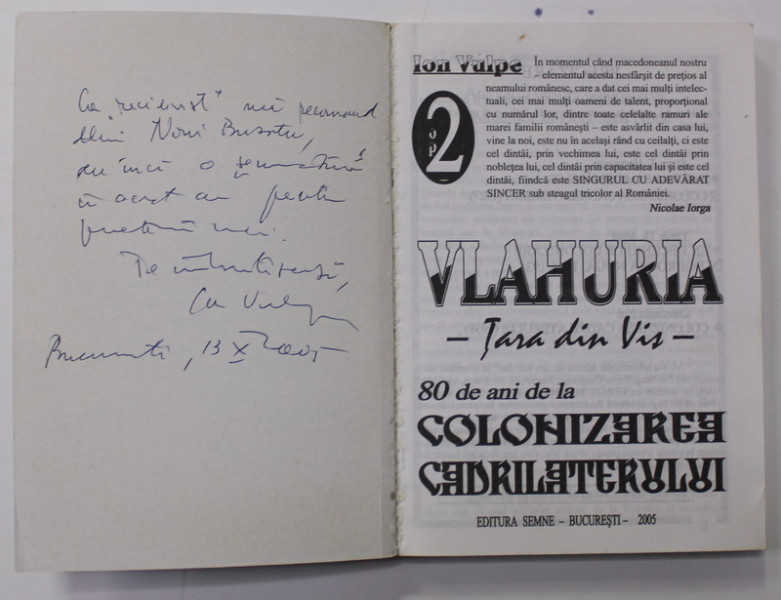 Ca "recidivist" mă recomand
Nouă
încă o semnătură
în acest an pentru
prietenii mei.
Ion Vulpe
București, 13 X 2005
Ion Vulpe
În momentul când macedoneanul nostru
– elementul acesta nesfârşit de preţios al
neamului românesc, care a dat cei mai mulţi intelec-
tuali, cei mai mulţi oameni de talent, proporţional
cu numărul lor, dintre toate celelalte ramuri ale
marei familii româneşti – este asvârlit din casa lui,
vine la noi, este nu în acelaşi rând cu ceilalţi, ci este
cel dintâi, prin vechimea lui, este cel dintâi prin
nobleţea lui, cel dintâi prin capacitatea lui şi este cel
dintâi, fiindcă este SINGURUL CU ADEVĂRAT
SINCER sub steagul tricolor al României.
Nicolae Iorga
2
VLAHURIA
– Ţara din Vis –
80 de ani de la
COLONIZAREA
CADRILATERULUI
EDITURA SEMNE – BUCUREŞTI – 2005